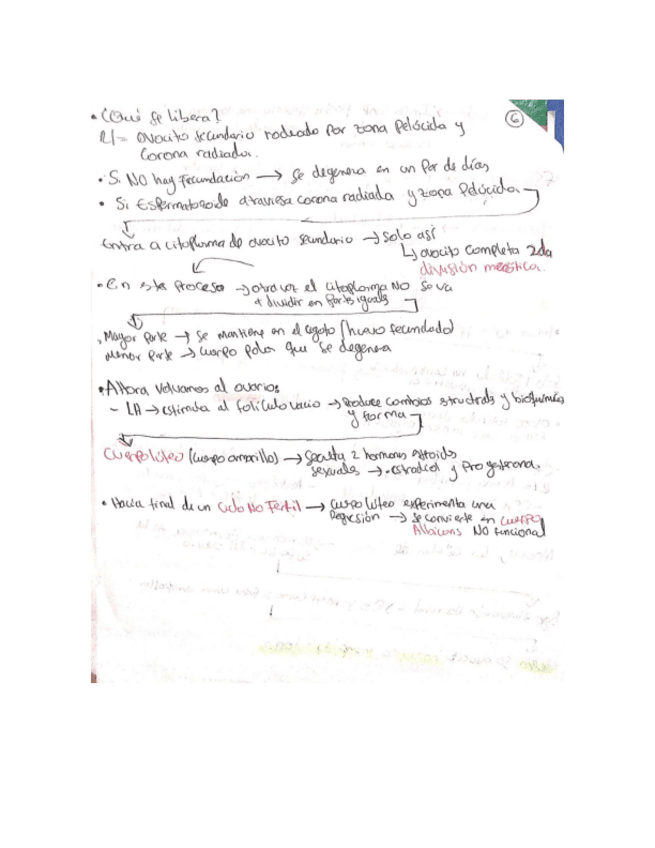 • ¿Qué se libera?
6
R/= ovocito secundario rodeado por zona pelúcida y
Corona radiada.
• Si NO hay fecundación → se degenera en un par de días
• Si Espermatozoide atraviesa corona radiada y zona Pelúcida
Entra a citoplasma de ovocito secundario → Solo así
↳ ovocito completa 2da
división meiótica.
• En este proceso → otra vez el citoplasma NO se va
a dividir en partes iguales
• Mayor parte → se mantiene en el cigoto (huevo fecundado)
Menor parte → cuerpo polar que se degenera
• Ahora volvamos al ovario
– LA → estimula al folículo vacío → produce cambios structrals y bioquímicos
y forma
Cuerpo lúteo (cuerpo amarillo) → Secreta 2 hormonas esteroids
sexuales → estradiol y progesterona.
• Hacia final de un ciclo No Fértil → cuerpo lúteo experimenta una
Regresión → se convierte en cuerpo
Albicans NO funcional